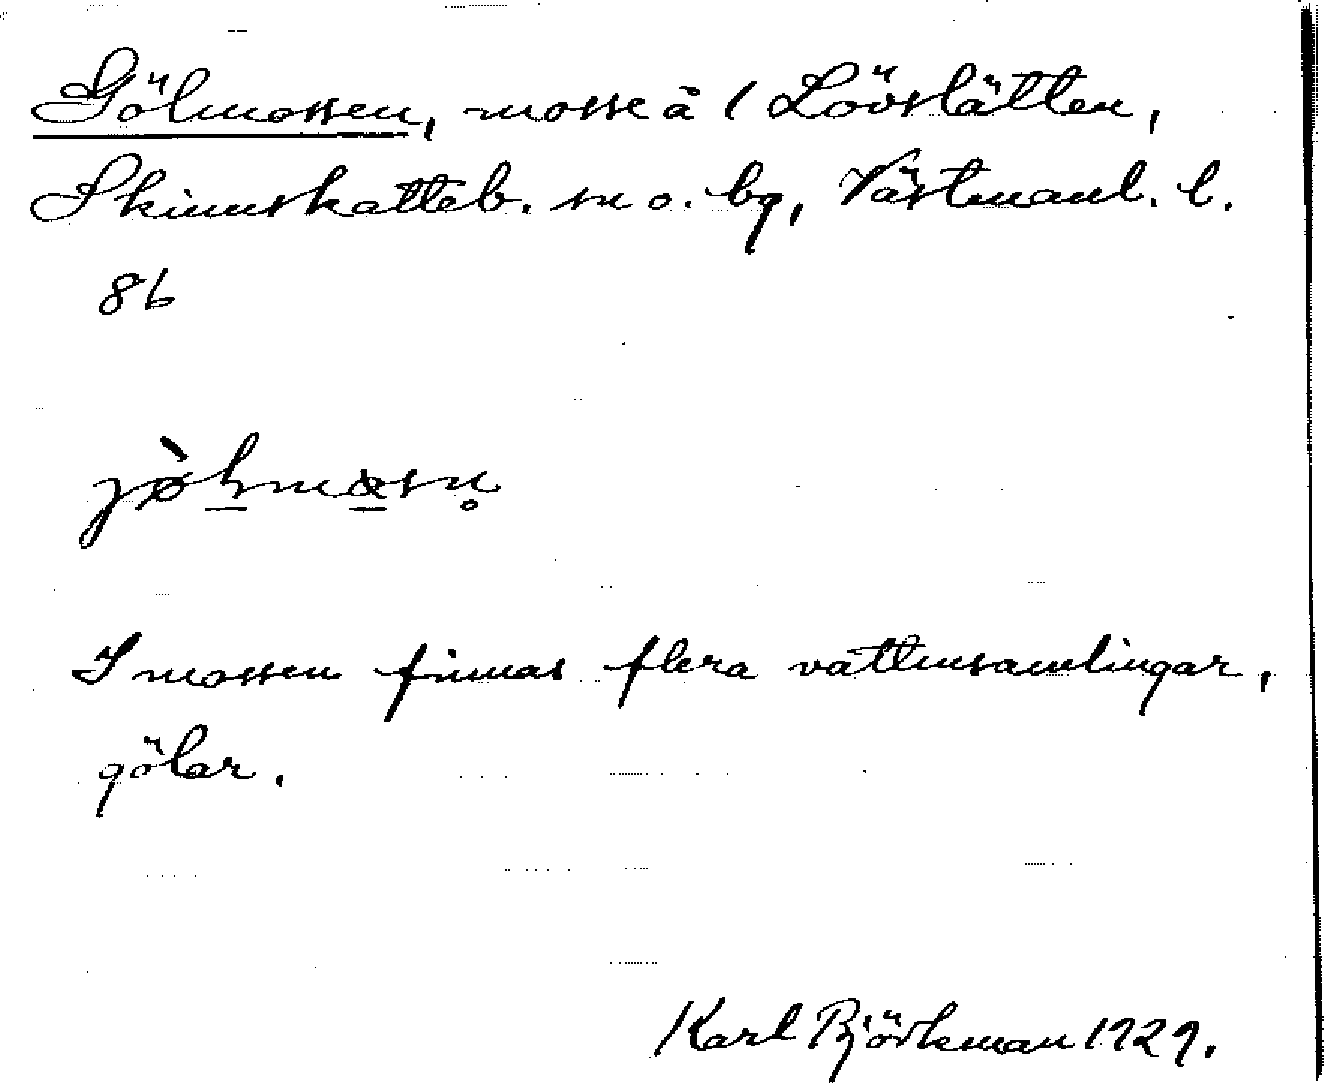 Gölmossen, mosse å 1 Lövslätten,
Skinnskatteb. sn o. bg, Västmanl. l.
86
I mossen finnas flera vattensamlingar,
gölar.
Karl Björkman 1929.